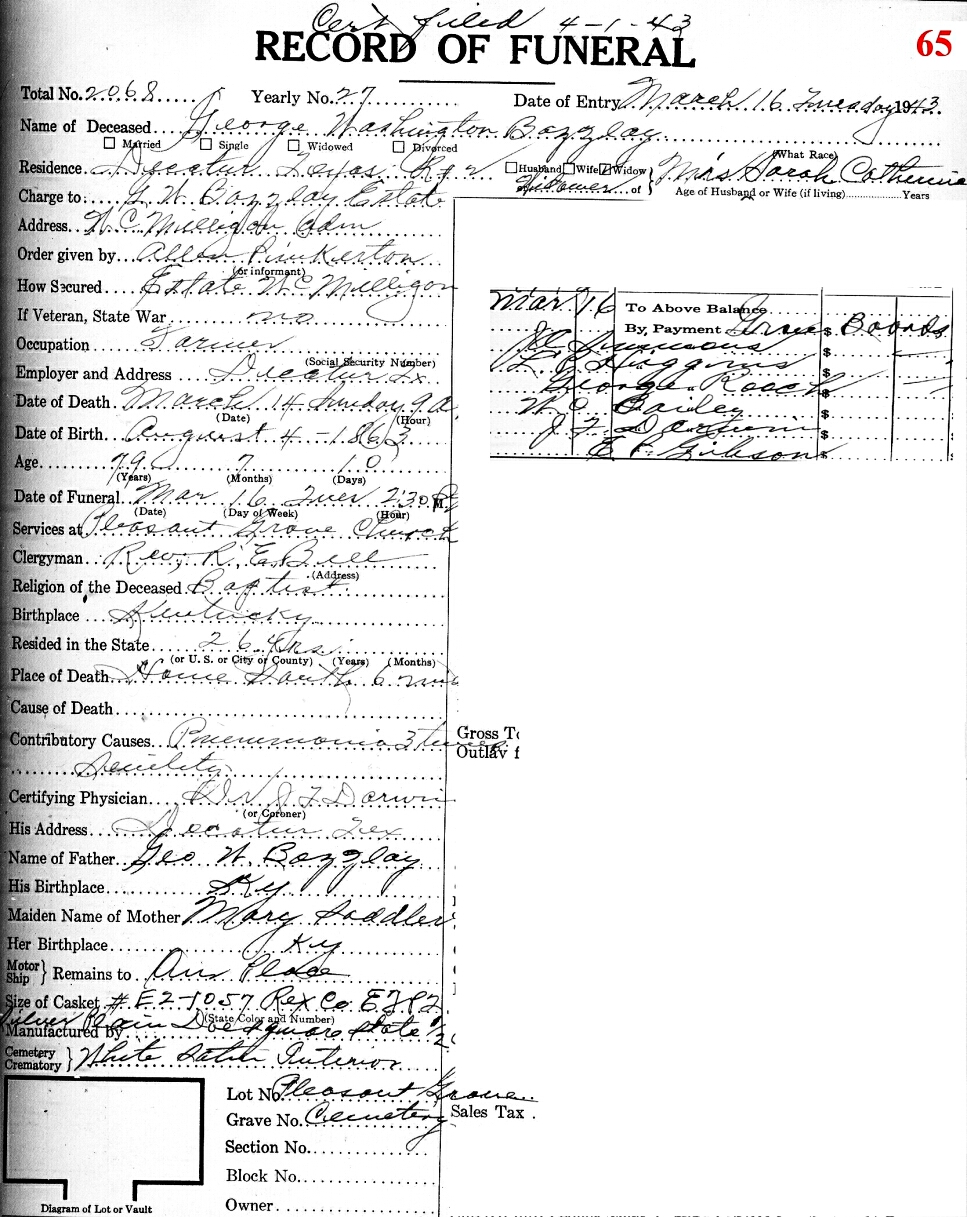 Cert filed 4-1-43
RECORD OF FUNERAL
65
Total No. 2068 Yearly No. 27 Date of Entry March 16 Tuesday 1943
Name of Deceased George Washington Bozzlay
Married Single Widowed Divorced (What Race)
Residence Decatur Texas R# 2 Husband Wife Widow Widower of } Mrs Sarah Catherine
Age of Husband or Wife (if living) Years
Charge to: G. W. Bozzlay Estate
Address W C Milligan Adm
Order given by Allen Pinkerton
(or informant)
How Secured Estate W C Milligan
If Veteran, State War no
Occupation Farmer
(Social Security Number)
Employer and Address Decatur Tx
Date of Death March 14 Sunday 9 a
(Date) (Hour)
Date of Birth August 4 - 1863
Age 79 7 10
(Years) (Months) (Days)
Date of Funeral Mar 16 Tues 2:30 P M.
(Date) (Day of Week) (Hour)
Services at Pleasant Grove Church
Clergyman Rev. R. E. Bell
(Address)
Religion of the Deceased Baptist
Birthplace Kentucky
Resided in the State 26 yrs
(or U. S. or City or County) (Years) (Months)
Place of Death Home South 6 mi
Cause of Death
Contributory Causes Pneumonia 3 times
Senility
Certifying Physician Dr J F Darwin
(or Coroner)
His Address Decatur Tex
Name of Father Geo W. Bozzlay
His Birthplace Ky
Maiden Name of Mother Mary Saddler
Her Birthplace Ky
Motor Ship } Remains to Our Place
Size of Casket # E2-1057 Rex Co
(State Color and Number)
Silver Plain Square State 1/2
Manufactured by
Cemetery Crematory } White Satin Interior
Lot No. Pleasant Grove
Grave No. Cemetery
Section No.
Block No.
Owner
Diagram of Lot or Vault
Mar 16 To Above Balance
By, Payment $ Boonds
Simmons $
Huggins $
George Roach $
W. O. Bailey
J. F. Darwin $
E P. Gibson $
Gross To
Outlay f
Sales Tax .